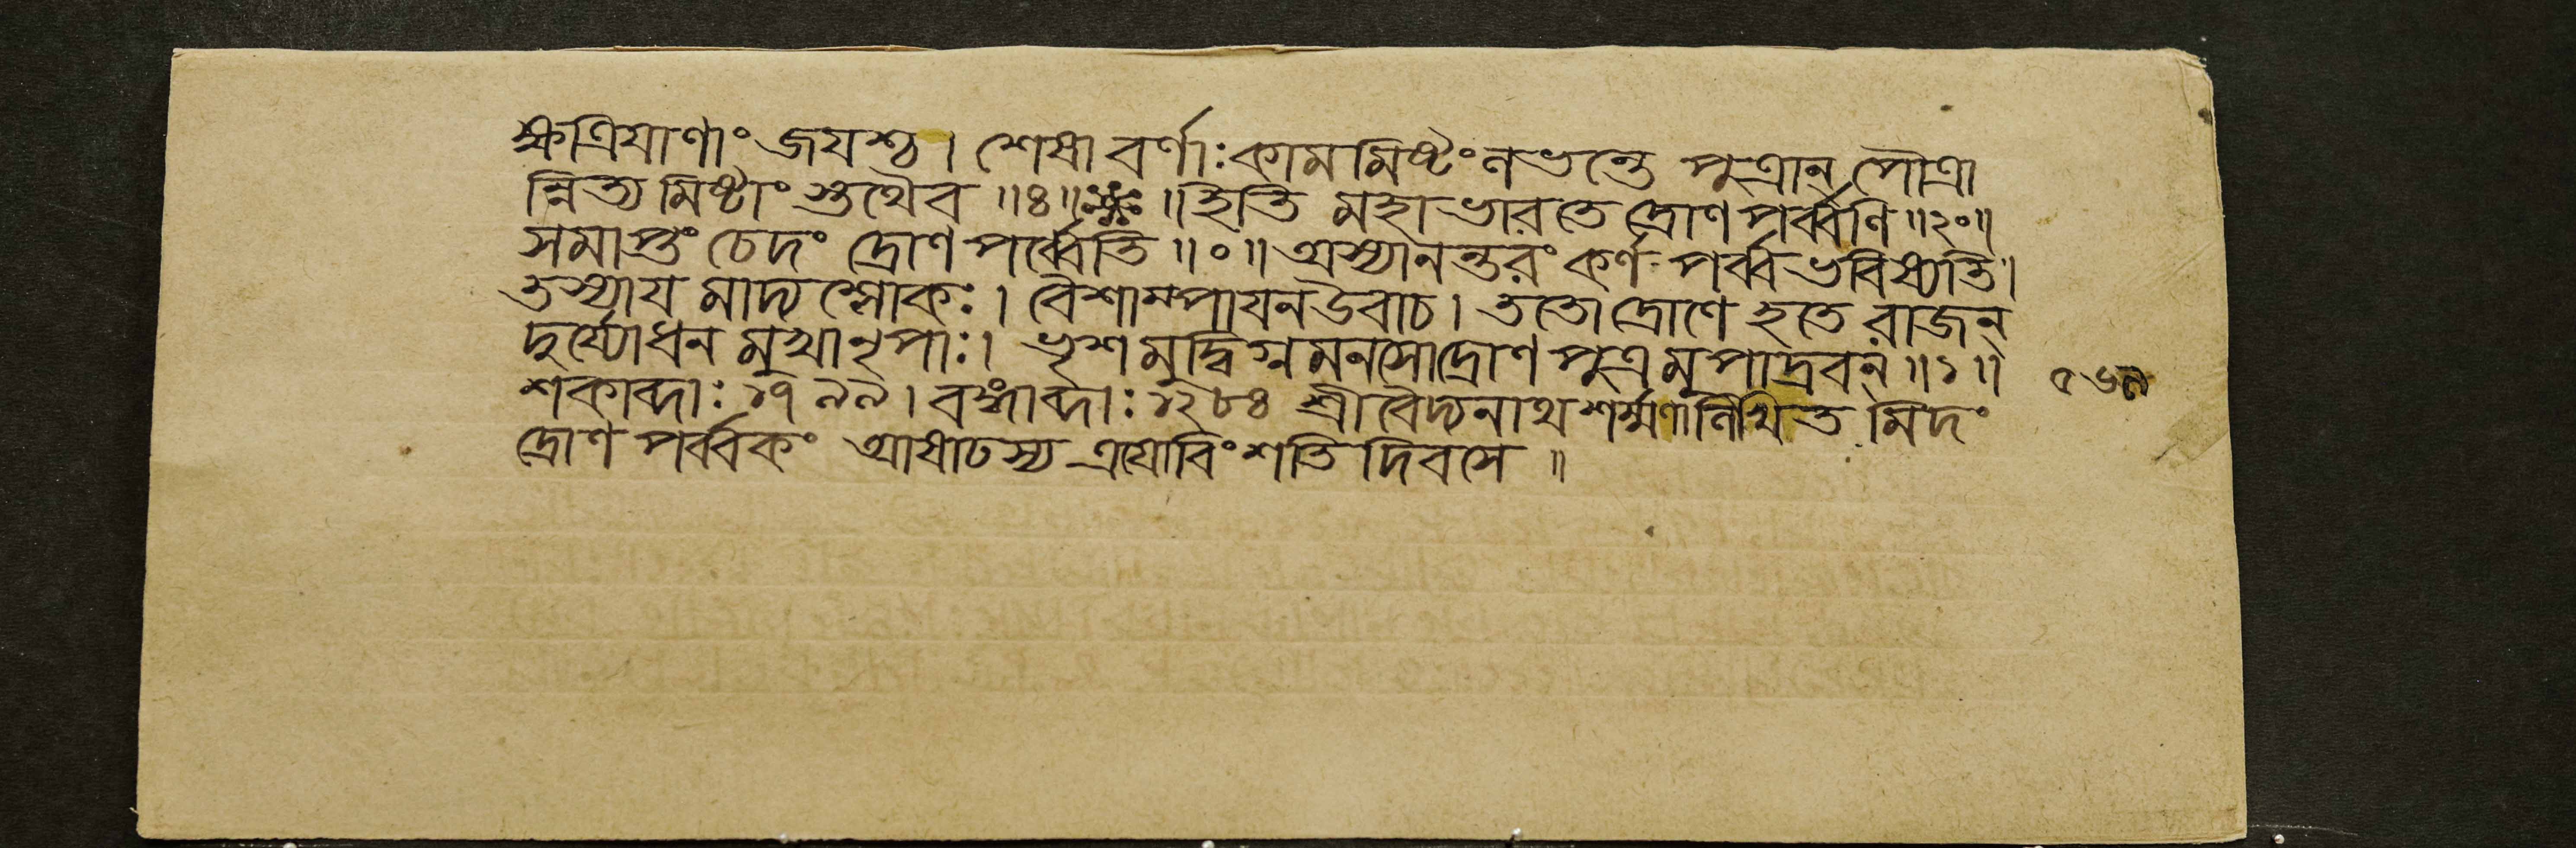 ক্ষত্রিযাণাং জযশ্চ। শেষা বর্ণাঃ কামমিষ্টং লভন্তে পুত্রান্ পৌত্রা
ন্নিত্যমিষ্টাংস্তথৈব ॥৪॥ ॥ ইতি মহাভারতে দ্রোণপর্ব্বণি ॥২০॥
সমাপ্তং চেদং দ্রোণপর্ব্বেতি ॥০॥ অস্যানন্তরং কর্ণপর্ব্ব ভবিষ্যতি।
তস্যাযমাদ্য শ্লোকঃ। বৈশাম্পাযন উবাচ। ততো দ্রোণে হতে রাজন্
দুর্য্যোধন মুখা নৃপাঃ। ভৃশমুদ্বিগ্নমনসো দ্রোণপুত্রমুপাদ্রবন্ ॥১॥
শকাব্দাঃ ১৭৯৯। বঙ্গাব্দাঃ ১২৮৪ শ্রীবৈদ্যনাথশর্ম্মণা লিখিতমিদং
দ্রোণপর্ব্বকং আষাঢস্য ত্রযোবিংশতি দিবসে ॥